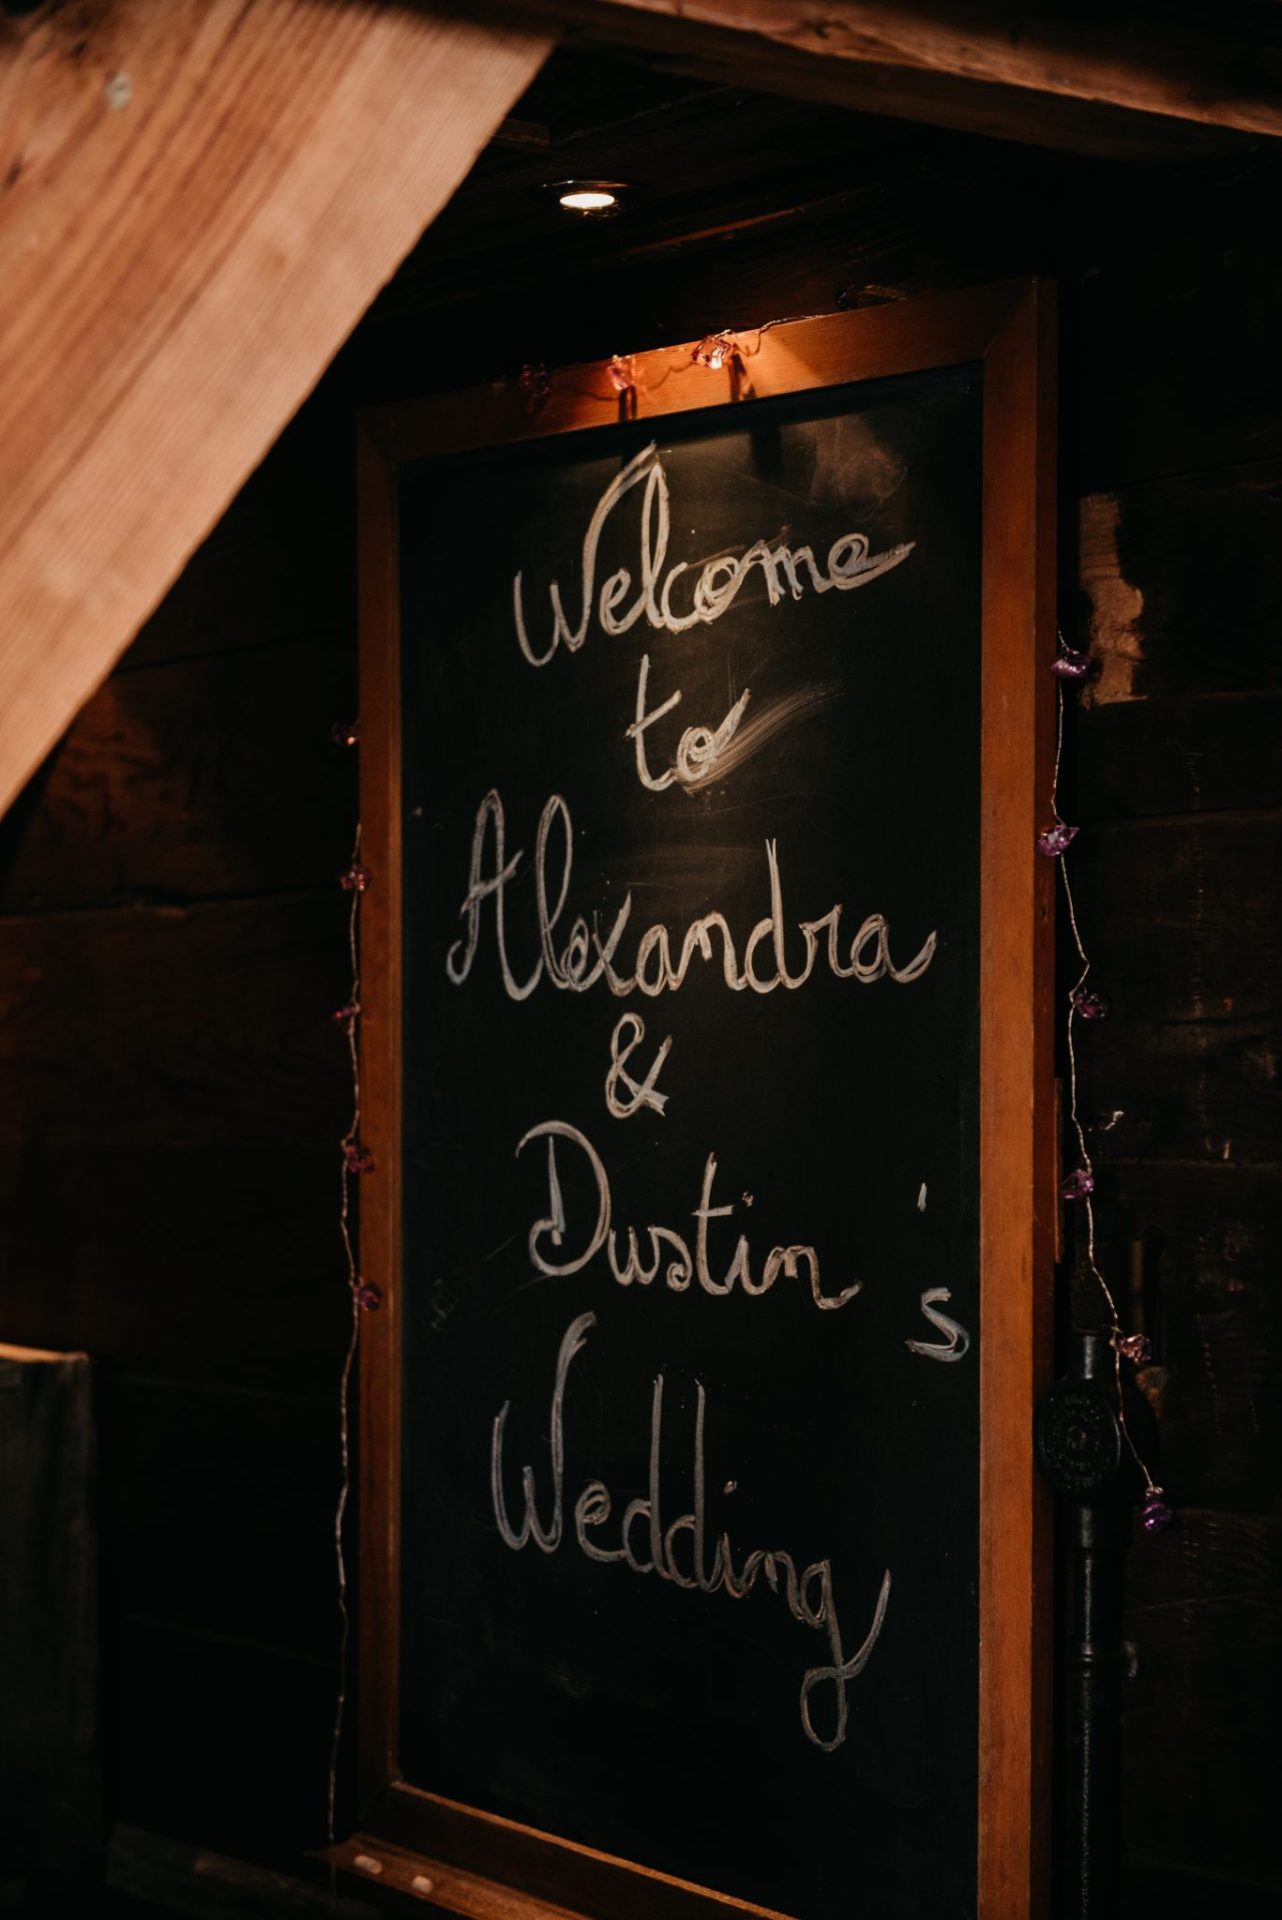 Welcome
to
Alexandra
&
Dustin 's
Wedding